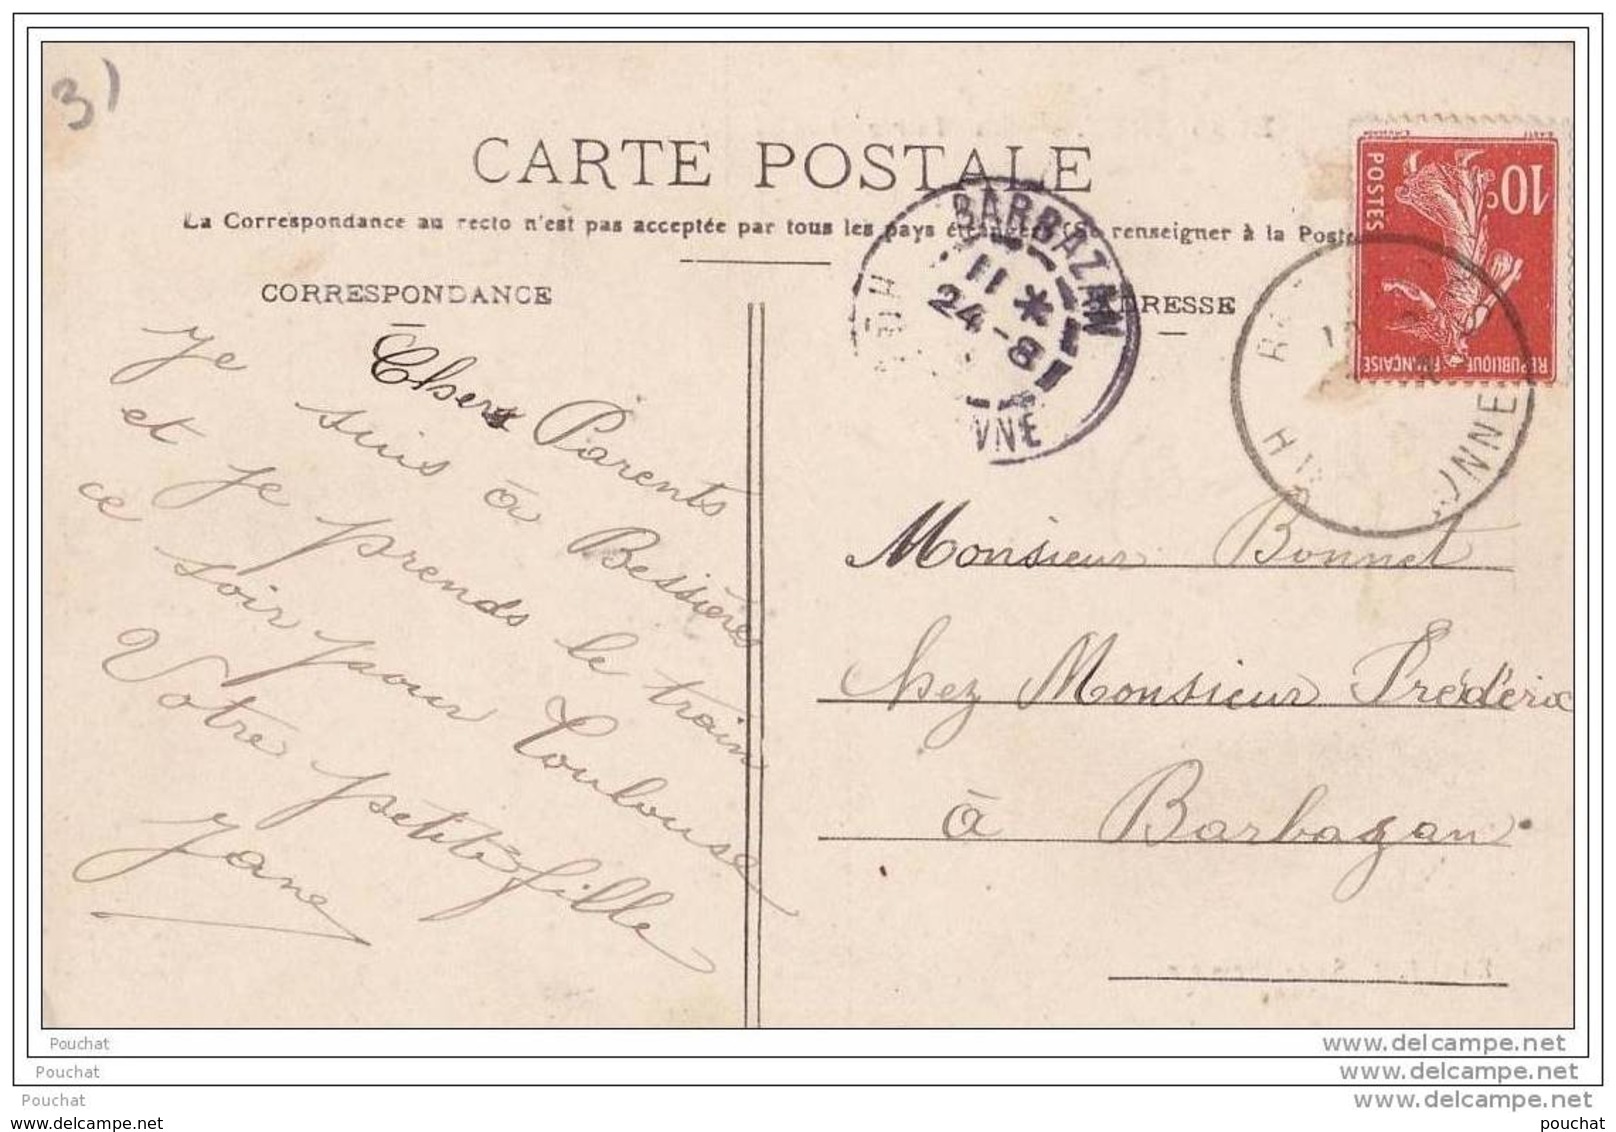 3)
CARTE POSTALE
La Correspondance au recto n'est pas acceptée par tous les pays étrangers (Se renseigner à la Poste
CORRESPONDANCE
Chers Parents
Je suis à Bessières
et je prends le train
ce soir pour Toulouse
Votre petite fille
Jane
ADRESSE
Monsieur Bonnet
chez Monsieur Frédéric
à Barbazan
BARBAZAN
11 *
24 - 8
HTE
NNE
10c
POSTES
REPUBLIQUE FRANÇAISE
H
NNE
Pouchat
www.delcampe.net
Pouchat
www.delcampe.net
Pouchat
www.delcampe.net
www.delcampe.net
pouchat